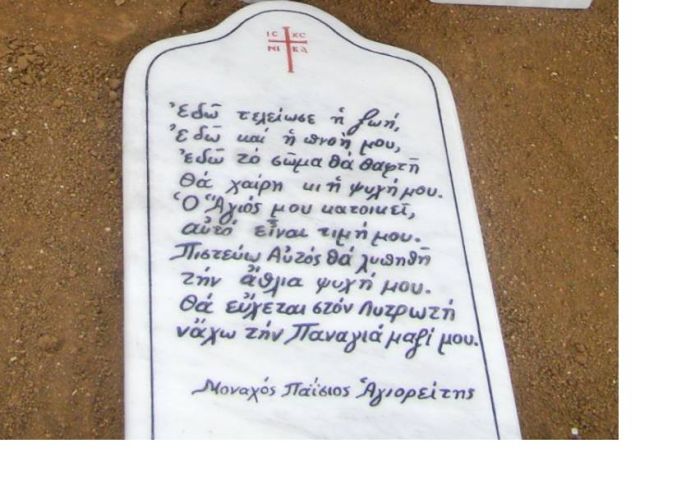 ΙC XC
ΝΙ ΚΑ
Ἐδῶ τελείωσε ἡ ζωή,
Ἐδῶ καί ἡ πνοή μου,
ἐδῶ τό σῶμα θά θαφτῆ
Θά χαίρη κι ἡ ψυχή μου.
Ὁ Ἅγιός μου κατοικεῖ,
αὐτό εἶναι τιμή μου.
Πιστεύω Αὐτός θά λυπηθῆ
τήν ἄθλια ψυχή μου.
Θά εὔχεται στόν Λυτρωτή
νἄχω τήν Παναγιά μαζί μου.
Μοναχός Παΐσιος Ἁγιορείτης